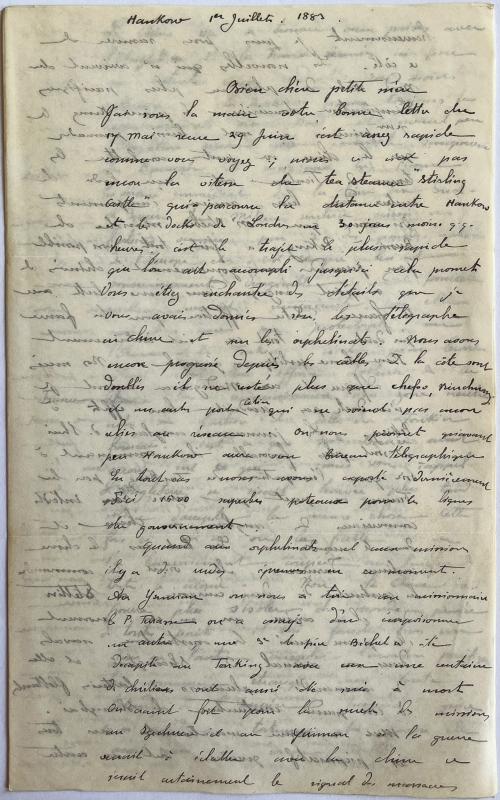 Hankow 1er Juillet. 1883.
Bien chère petite mère
J'ai sous la main votre bonne lettre du
17 Mai reçue 29 Juin c'est assez rapide
comme vous voyez ; mais ce n'est pas
encore la vitesse du tea steamer "Stirling
Castle" qui parcourut la distance entre Hankow
et les docks de Londres en 30 jours moins
heures. c'est le trajet le plus rapide
que l'on ait accompli jusqu'ici cela promet
Vous étiez enchantée des détails que je
vous avais donnés sur les télégraphes
en chine et sur les orphelinats. Nous avons
encore progressé depuis les câbles de la côte sont
doublés il ne reste plus que chefoo,
et un autre port qui ne soient pas encore
reliés au réseau. On nous promet
peu Hankow aura son bureau télégraphique
En tout cas nous avons exporté dernièrement
d'ici 1500 superbes poteaux pour les lignes
du gouvernement
Quand aux orphelinats et aux missions
il y a de rudes épreuves en ce moment.
Au Yunnan on nous a tué un missionnaire
le P. on a essayé d'en empoisonner
un autre, une Béchet a été
décapité au Tonking avec une centaine
de chrétiens ont aussi été mis à mort
On craint fort pour la des missions
au et au Yunnan si la guerre
venait à éclater avec la chine ce
serait certainement le signal des massacres